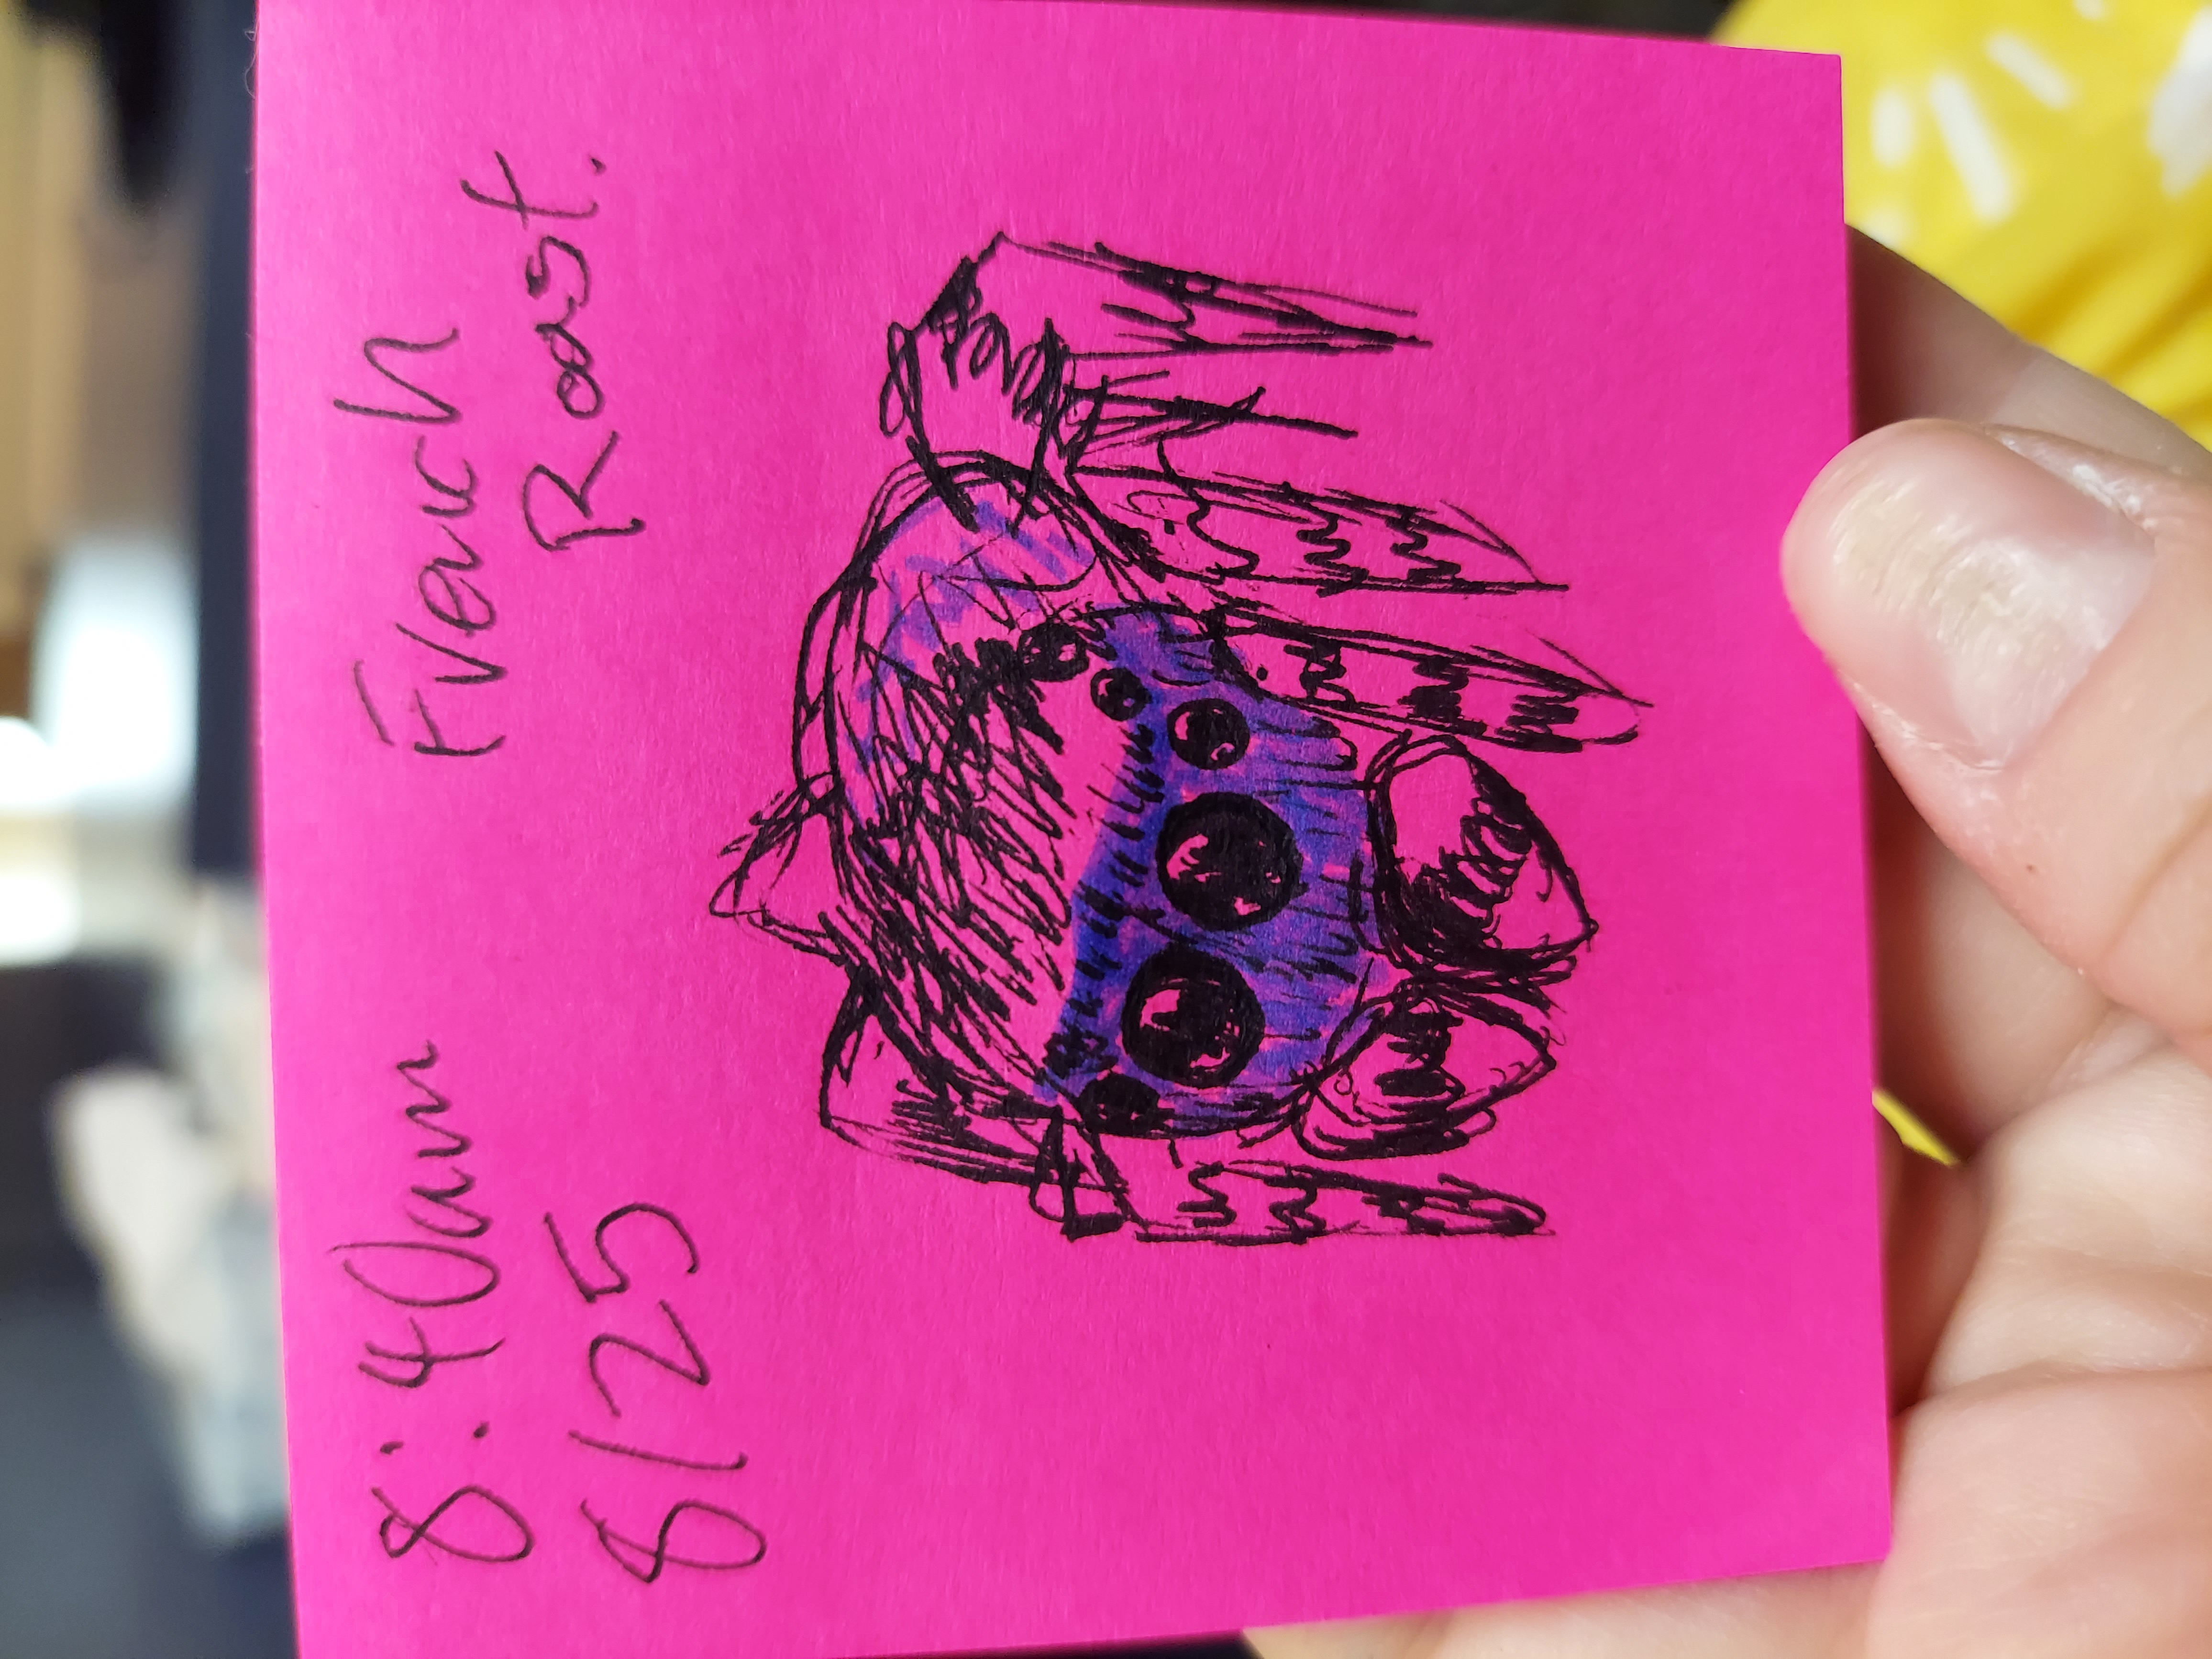 8:40am
8/25
French
Roast.